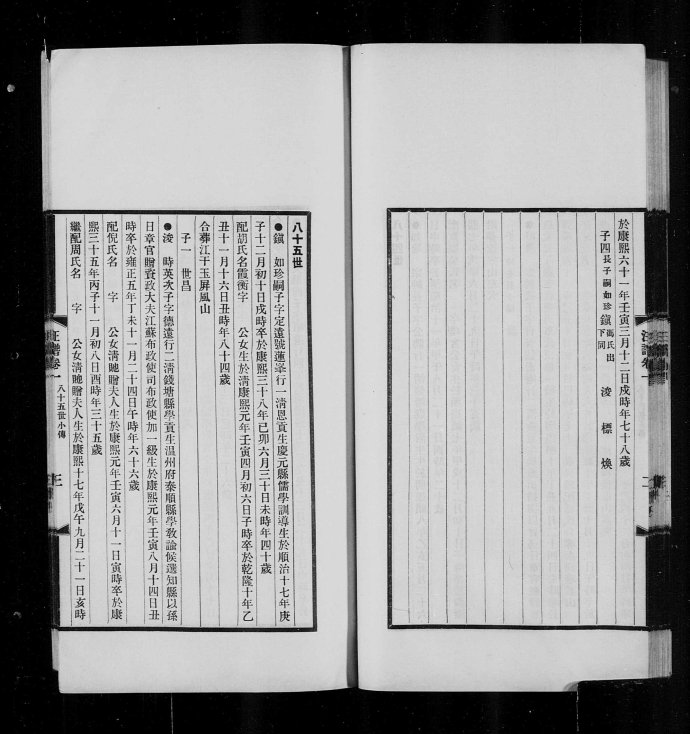 於康熙六十一年壬寅三月十二日戌時年七十八歲
子四長子嗣如珍 鎭馮氏出下同 浚 標 煥
汪譜卷一
二
八十五世
●鎭 如珍嗣子字定遠號蓮峯行一淸恩貢生慶元縣儒學訓導生於順治十七年庚
子十二月初十日戌時卒於康熙三十八年己卯六月三十日未時年四十歲
配胡氏名霞衡字 公女生於淸康熙元年壬寅四月初六日子時卒於乾隆十年乙
丑十一月十六日丑時年八十四歲
合葬江干玉屏風山
子一 世昌
●浚 時英次子字德遠行二淸錢塘縣學貢生温州府泰順縣學敎諭候選知縣以孫
日章官贈資政大夫江蘇布政使司布政使加一級生於康熙元年壬寅八月十四日丑
時卒於雍正五年丁未十一月二十四日午時年六十六歲
配倪氏名 字 公女淸貤贈夫人生於康熙元年壬寅六月十一日寅時卒於康
熙三十五年丙子十一月初八日酉時年三十五歲
繼配周氏名 字 公女淸貤贈夫人生於康熙十七年戊午九月二十一日亥時
汪譜卷一
八十五世小傳
三